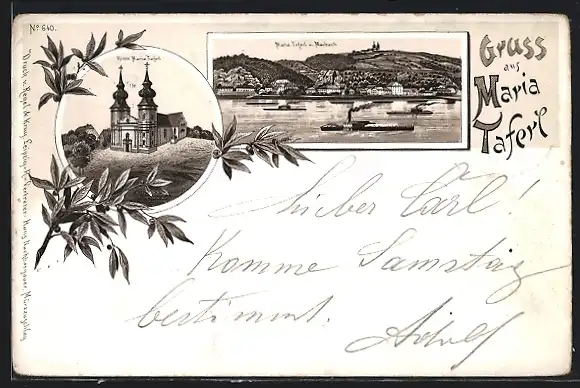 No 640.
Kirche Maria Taferl
Maria Taferl u. Marbach
Gruss
aus
Maria
Taferl
Lieber Carl!
Komme Samstag
bestimmt.
Adolf
Druck v. Regel & Krug, Leipzig-R. Vertreter: Hans Nachbargauer, Mürzzuschlag